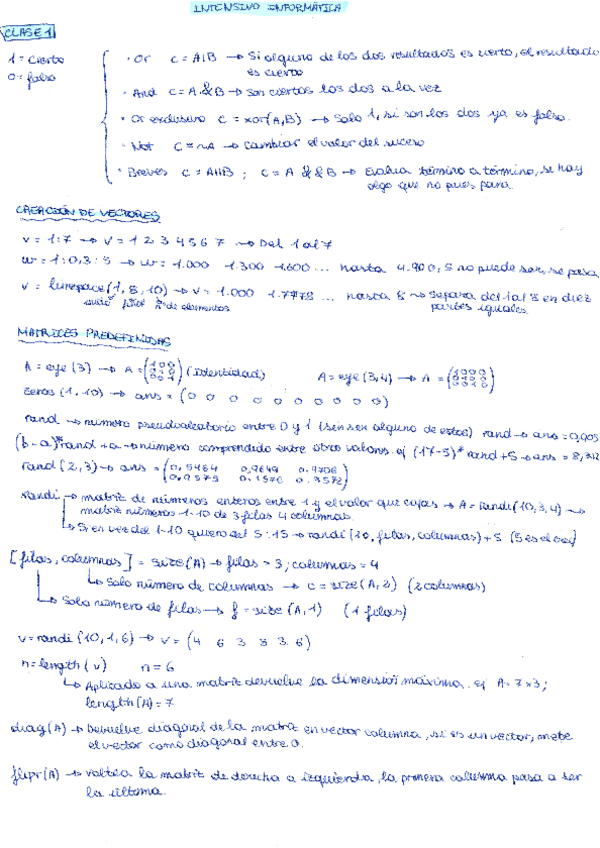 INTENSIVO INFORMÁTICA
CLASE 1
1 = cierto
0 = falso
· Or c = A|B → Si alguno de los dos resultados es cierto, el resultado
es cierto
· And c = A & B → son ciertos los dos a la vez
· Or exclusivo c = xor(A,B) → Solo 1, si son los dos ya es falso.
· Not c = ~A → cambiar el valor del suceso
· Breves c = A||B ; c = A && B → Evalua término a término, se hay
algo que no pues para.
CREACIÓN DE VECTORES
v = 1:7 → v = 1 2 3 4 5 6 7 → Del 1 al 7
w = 1:0,3:5 → w = 1.000 1.300 1.600 ... hasta 4.900, 5 no puede ser, se pasa
v = linespace(1, 8, 10) → v = 1.000 1.7778 ... hasta 8 → Separa del 1 al 8 en diez
final nº de elementos partes iguales.
MATRICES PREDEFINIDAS
A = eye(3) → A = (1 0 0 0 1 0 0 0 1) (identidad) A = eye(3,4) → A = (1 0 0 0 0 1 0 0 0 0 1 0)
zeros(1,10) → ans = (0 0 0 0 0 0 0 0 0 0)
rand → número pseudoaleatorio entre 0 y 1 (sin ser alguno de estos) rand → ans = 0,905
(b-a)*rand + a → número comprendido entre otros valores. ej (17-5)*rand+5 → ans = 8,
rand(2,3) → ans = (0,5464 0.9649 0.9706
0.9575 0.1576 0.9572)
randi → matriz de números enteros entre 1 y el valor que cojas → A = randi(10,3,4) →
matriz números 1-10 de 3 filas 4 columnas.
→ Si en vez del 1-10 quiero del 5:15 → randi(10, filas, columnas) + 5 (5 es el
[filas, columnas] = size(A) → filas = 3; columnas = 4
→ Solo número de columnas → c = size(A,2) (2 columnas)
→ Solo número de filas → f = size(A,1) (1 filas)
v = randi(10,1,6) → v = (4 6 3 8 3 6)
n = length(v) n = 6
→ Aplicado a una matriz devuelve la dimensión máxima. ej A = 7×3;
length(A) = 7
diag(A) → Devuelve diagonal de la matriz en vector columna, si es un vector, mete
el vector como diagonal entre 0.
flipr(A) → voltea la matriz de derecha a izquierda, la primera columna pasa a ser
la última.